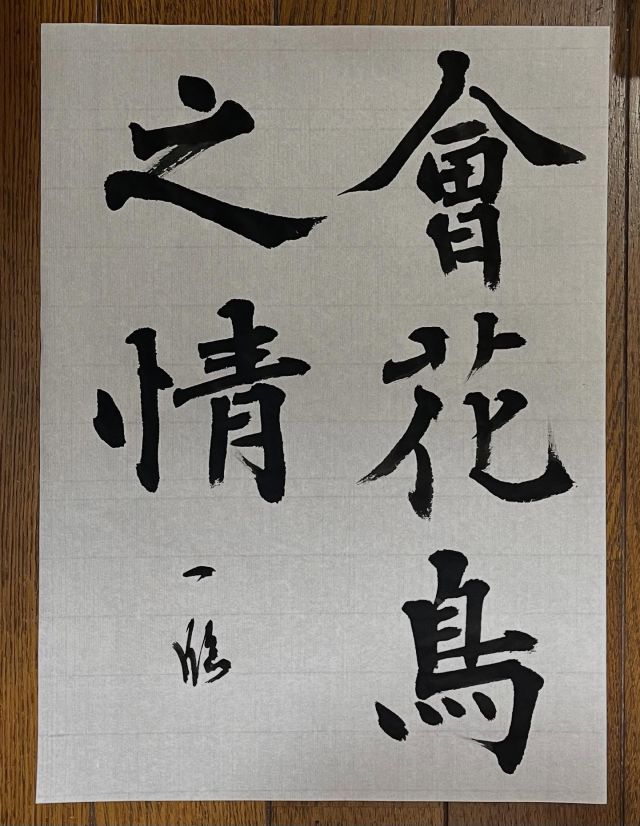 會花鳥
之情
一臨